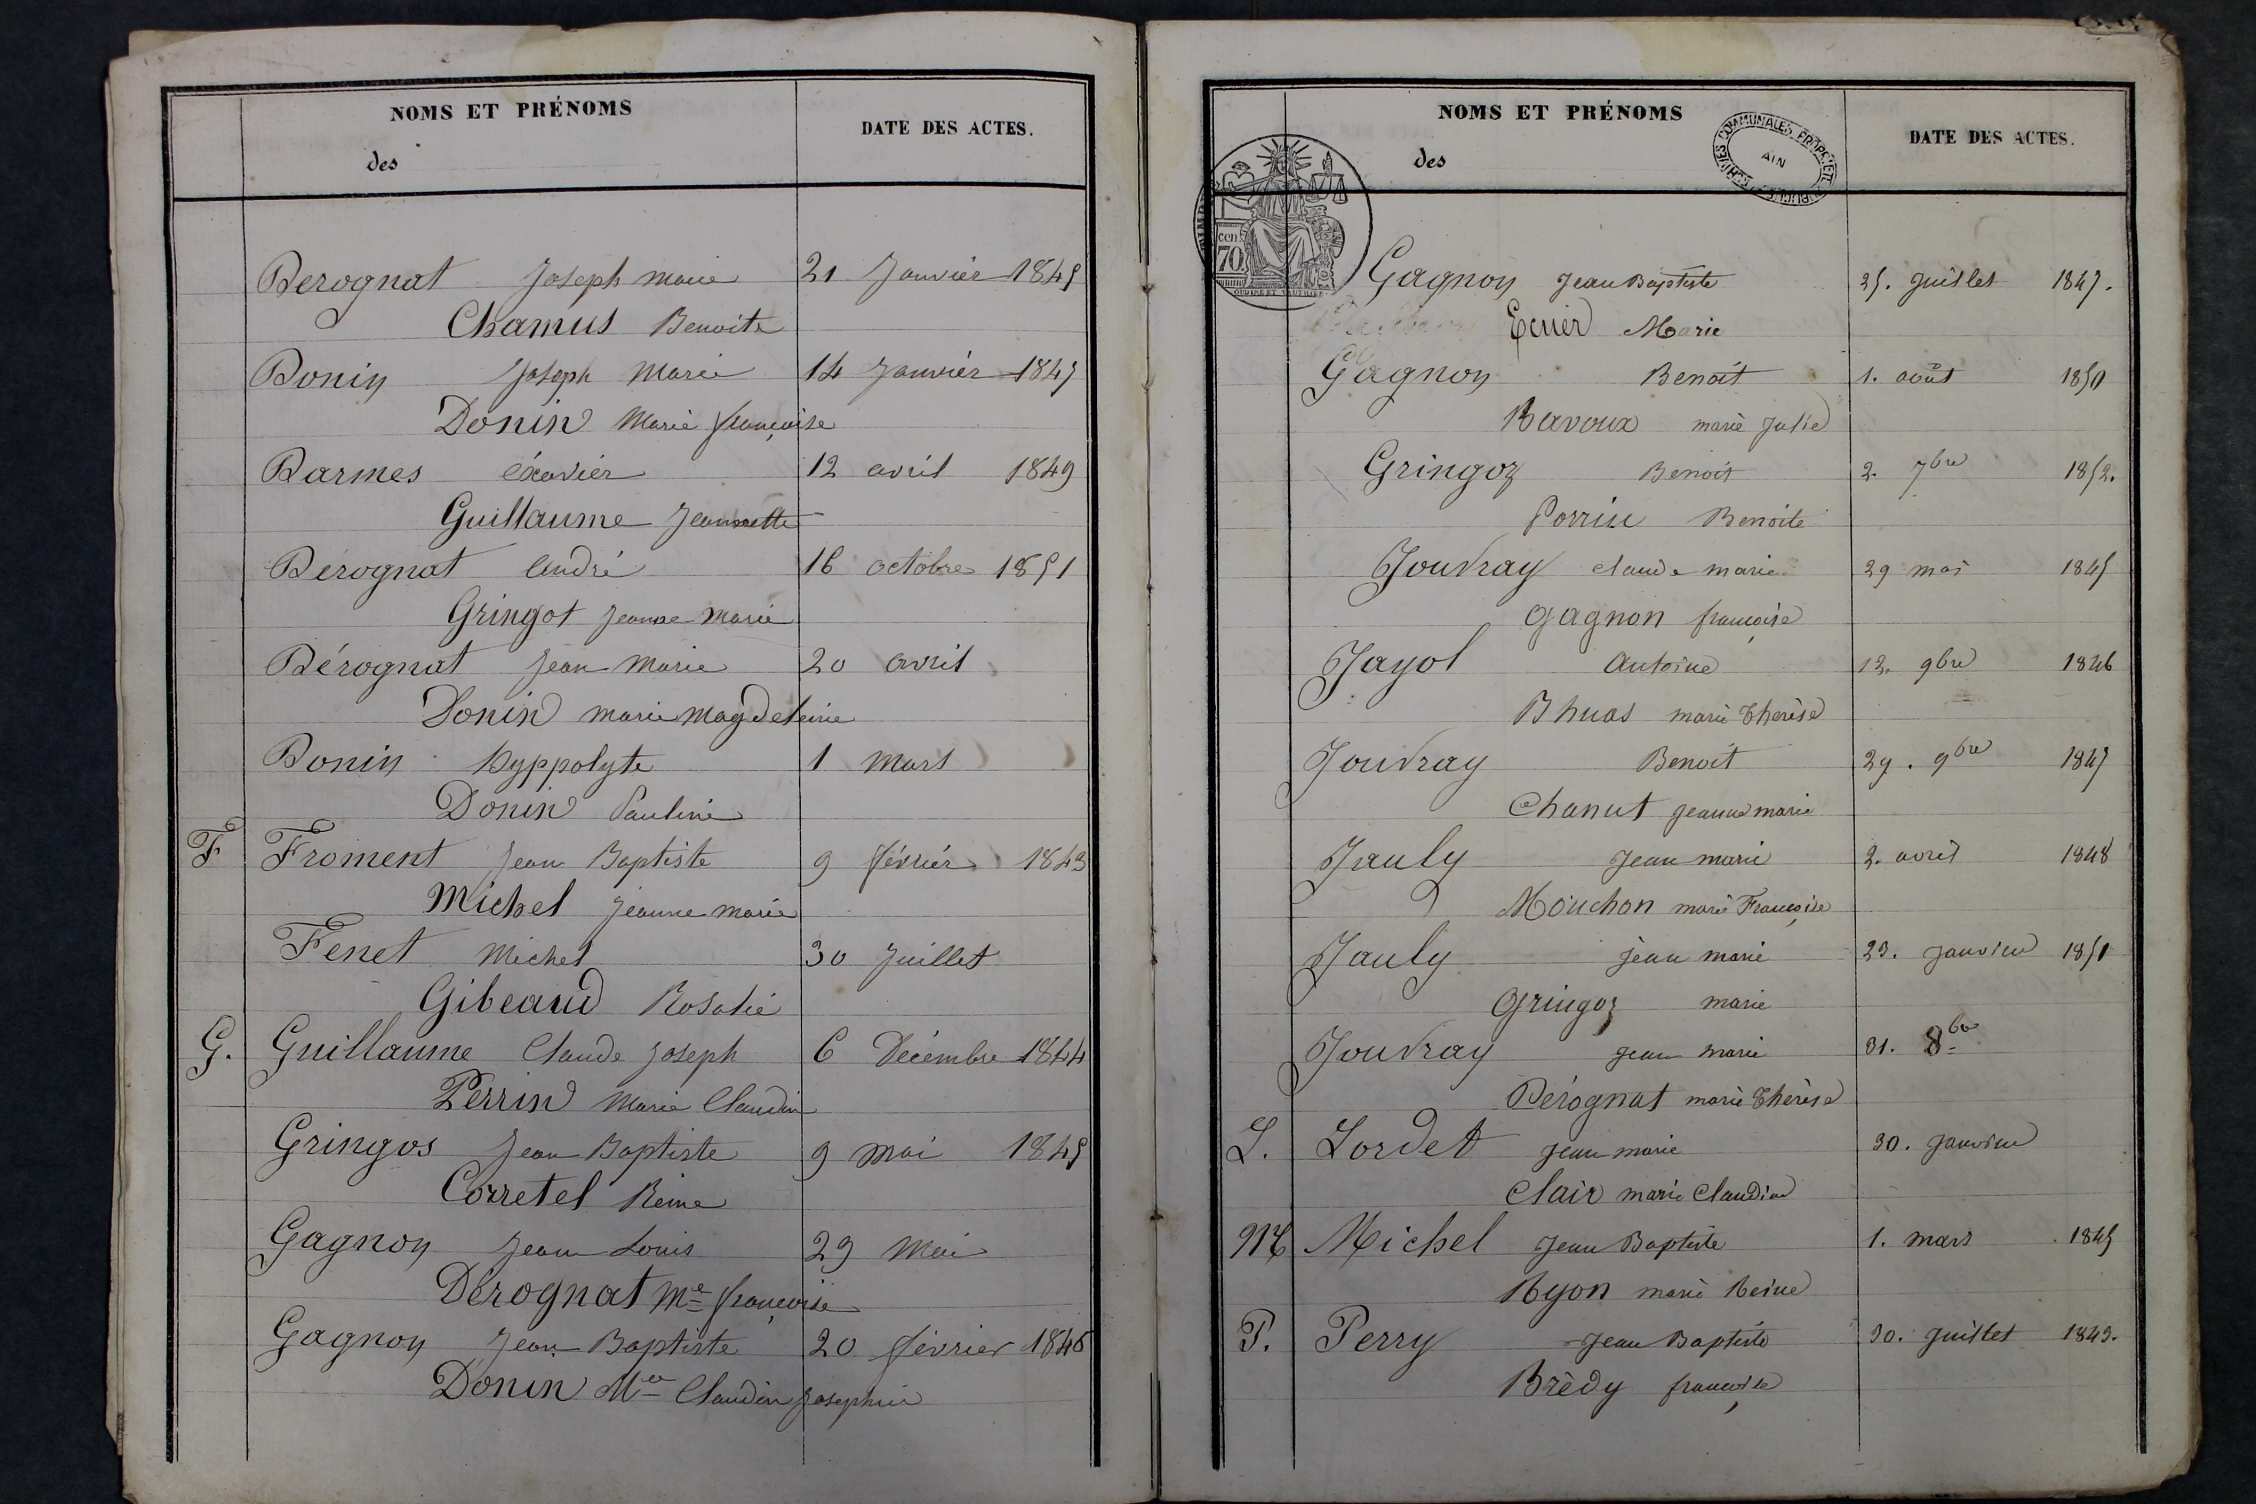 NOMS ET PRÉNOMS
des
DATE DES ACTES.
Derognat Joseph marie 21 Janvier 1845
Chamus Benoite
Donin Joseph Marie 14 Janvier 1845
Donin Marie françoise
Darmes éxavier 12 avril 1849
Guillaume Jeannette
Dérognat André 16 octobre 1851
Gringot Jeanne Marie
Dérognat Jean Marie 20 avril
Donin marie Magdeleine
Donin Hyppolyte 1 Mars
Donin Pauline
F Froment Jean Baptiste 9 février 1843
Michel Jeanne marie
Fenet Michel 30 Juillet
Gibeaud Rosalie
G. Guillaume Claude Joseph 6 Décembre 1844
Perrin Marie Claudin
Gringos Jean Baptiste 9 Mai 1845
Corretel Reine
Gagnon Jean Louis 29 Mai
Dérognat Me françoise
Gagnon Jean Baptiste 20 février 1846
Donin Mie Claudin Josephine
NOMS ET PRÉNOMS
des
DATE DES ACTES.
ARCHIVES COMMUNALES PROPRIÉTÉ PUBLIQUE
AIN
cen.
70
Gagnon Jean Baptiste 25. Juillet 1847.
Ecuier Marie
Gagnon Benoit 1. août 1850
Ravoux marie Julie
Gringoz Benoit 2. 7bre 1852.
Perrin Benoite
Jouvray claude marie 29 mai 1845
Gagnon françoise
Jayol Antoine 12. 9bre 1846
Bhuas marie Thérèse
Jouvray Benoit 29. 9bre 1847
Chanut jeanne marie
Jauly Jean marie 2. avril 1848
Mouchon marie Françoise
Jauly jean marie 23. janvier 1850
Gringoz marie
Jouvray jean marie 31. 8bre
Dérognat marie Thérèse
L. Lordet jean marie 30. janvier
Clair marie Claudine
M Michel Jean Baptiste 1. mars 1845
Ryon marie Reine
P. Perry Jean Baptiste 30. juillet 1843.
Brèdy françoise